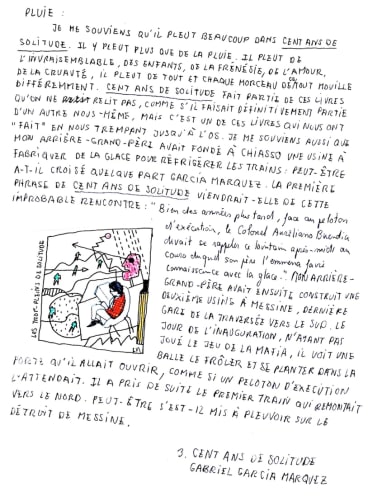 PLUIE :
JE ME SOUVIENS QU'IL PLEUT BEAUCOUP DANS CENT ANS DE
SOLITUDE. IL Y PLEUT PLUS QUE DE LA PLUIE. IL PLEUT DE
L'INVRAISEMBLABLE, DES ENFANTS, DE LA FRÉNÉSIE, DE L'AMOUR,
DE LA CRUAUTÉ, IL PLEUT DE TOUT ET CHAQUE MORCEAU DE TOUT MOUILLE
DIFFÉREMMENT. CENT ANS DE SOLITUDE FAIT PARTIE DE CES LIVRES
QU'ON NE RELIT PAS, COMME S'IL FAISAIT DÉFINITIVEMENT PARTIE
D'UN AUTRE NOUS-MÊME, MAIS C'EST UN DE CES LIVRES QUI NOUS ONT
"FAIT" EN NOUS TREMPANT JUSQU'À L'OS. JE ME SOUVIENS AUSSI QUE
MON ARRIÈRE-GRAND-PÈRE AVAIT FONDÉ À CHIASSO UNE USINE À
FABRIQUER DE LA GLACE POUR RÉFRIGÉRER LES TRAINS : PEUT-ÊTRE
A-T-IL CROISÉ QUELQUE PART GARCIA MARQUEZ. LA PREMIÈRE
PHRASE DE CENT ANS DE SOLITUDE VIENDRAIT-ELLE DE CETTE
IMPROBABLE RENCONTRE : "Bien des années plus tard, face au peloton
d'exécution, le Colonel Aureliano Buendia
devait se rappeler ce lointain après-midi au
cours duquel son père l'emmena faire
connaissance avec la glace." MON ARRIÈRE-
GRAND-PÈRE AVAIT ENSUITE CONSTRUIT UNE
DEUXIÈME USINE À MESSINE, DERNIÈRE
GARE DE LA TRAVERSÉE VERS LE SUD. LE
JOUR DE L'INAUGURATION, N'AYANT PAS
JOUÉ LE JEU DE LA MAFIA, IL VOIT UNE
BALLE LE FRÔLER ET SE PLANTER DANS LA
PORTE QU'IL ALLAIT OUVRIR, COMME SI UN PELOTON D'EXÉCUTION
L'ATTENDAIT. IL A PRIS DE SUITE LE PREMIER TRAIN QUI REMONTAIT
VERS LE NORD. PEUT-ÊTRE S'EST-IL MIS À PLEUVOIR SUR LE
DÉTROIT DE MESSINE.
DE SOLITUDE
3. CENT ANS DE SOLITUDE
GABRIEL GARCIA MARQUEZ